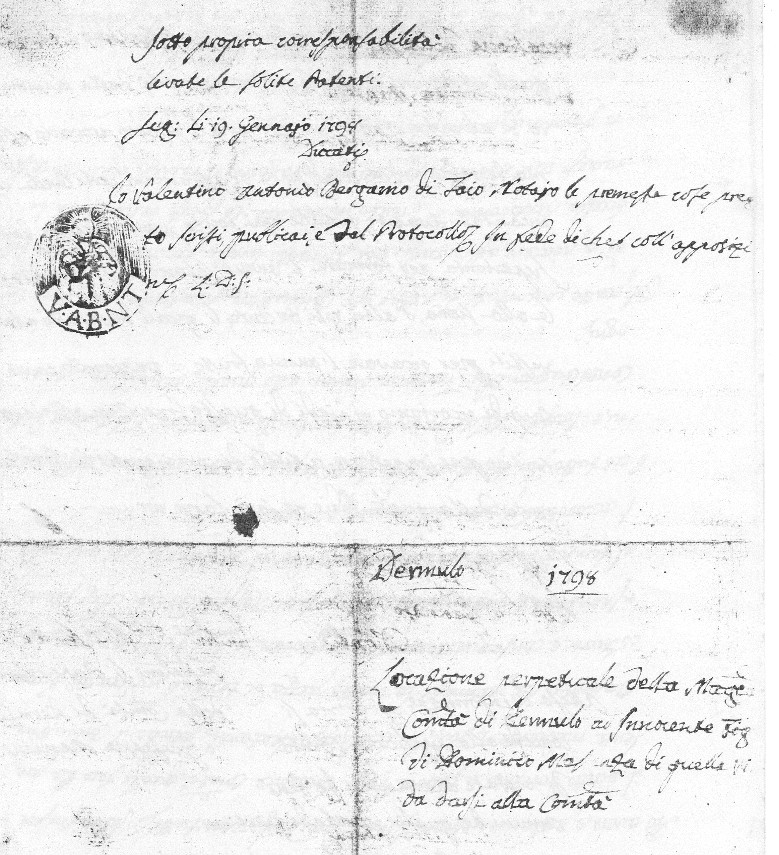 sotto propria corresponsabilità
levate le solite Patenti.
Seg: li 19. Gennajo 1798
Io Valentino Antonio Bergamo di Taio Notajo le premesse cose pre
to scrissi publicai, e dal Protocollo In fede di che coll apposizi
V·A·B·N·T
Dermulo 1798
Locazione perpetuale della Mag.ca
Com̃tà di Dermulo ad Innocente
di Dominico di quella
da darsi alla Com̃tà